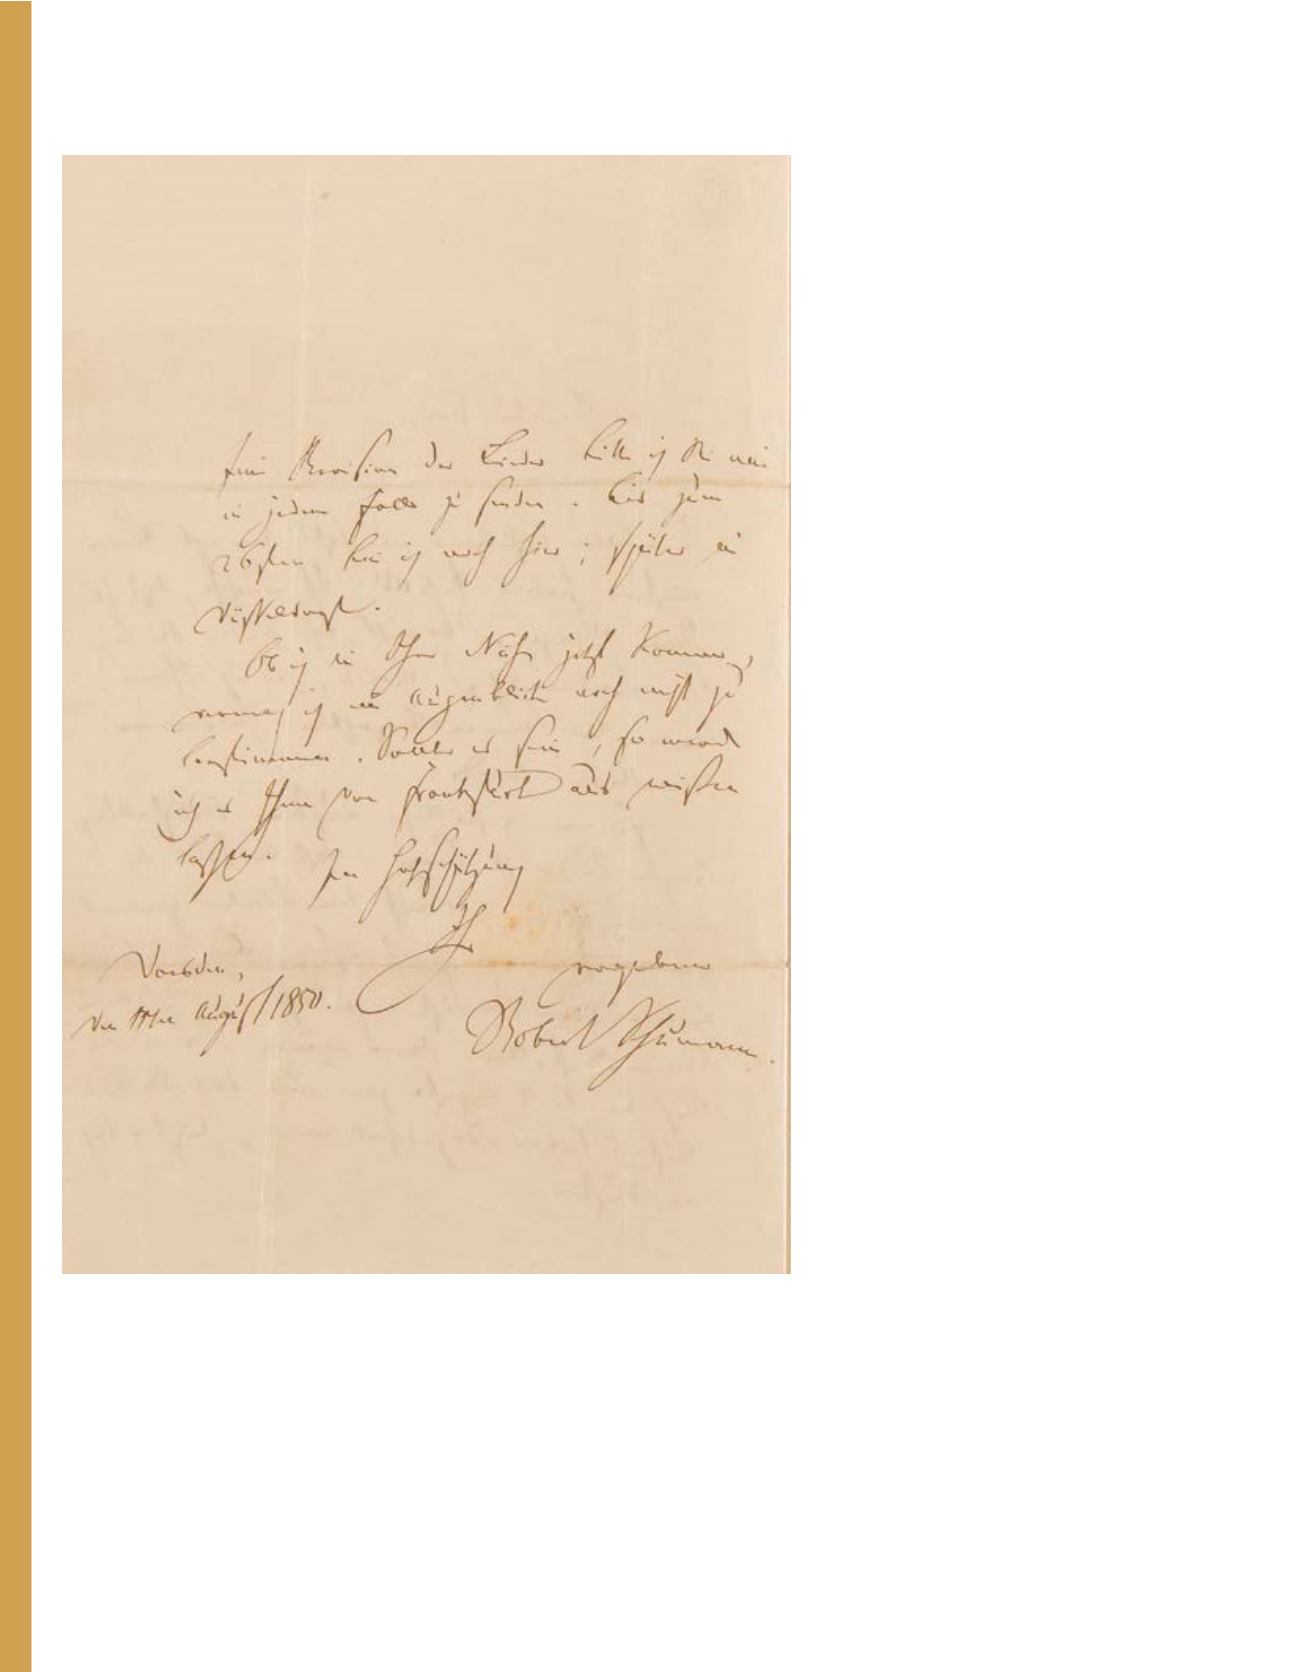 Eine Revision der Lieder bitte ich Sie mir
in jedem Falle zu senden. Bis zum
26sten bin ich noch hier; später in
Düsseldorf.
Ob ich in Ihre Nähe jetzt komme,
vermag ich im Augenblick noch nicht zu
bestimmen. Sollte es sein, so werde
ich es Ihnen von Frankfurt aus wissen
lassen.
In Hochschätzung
Ihr
ergebener
Dresden,
den August 1850.
Robert Schumann.